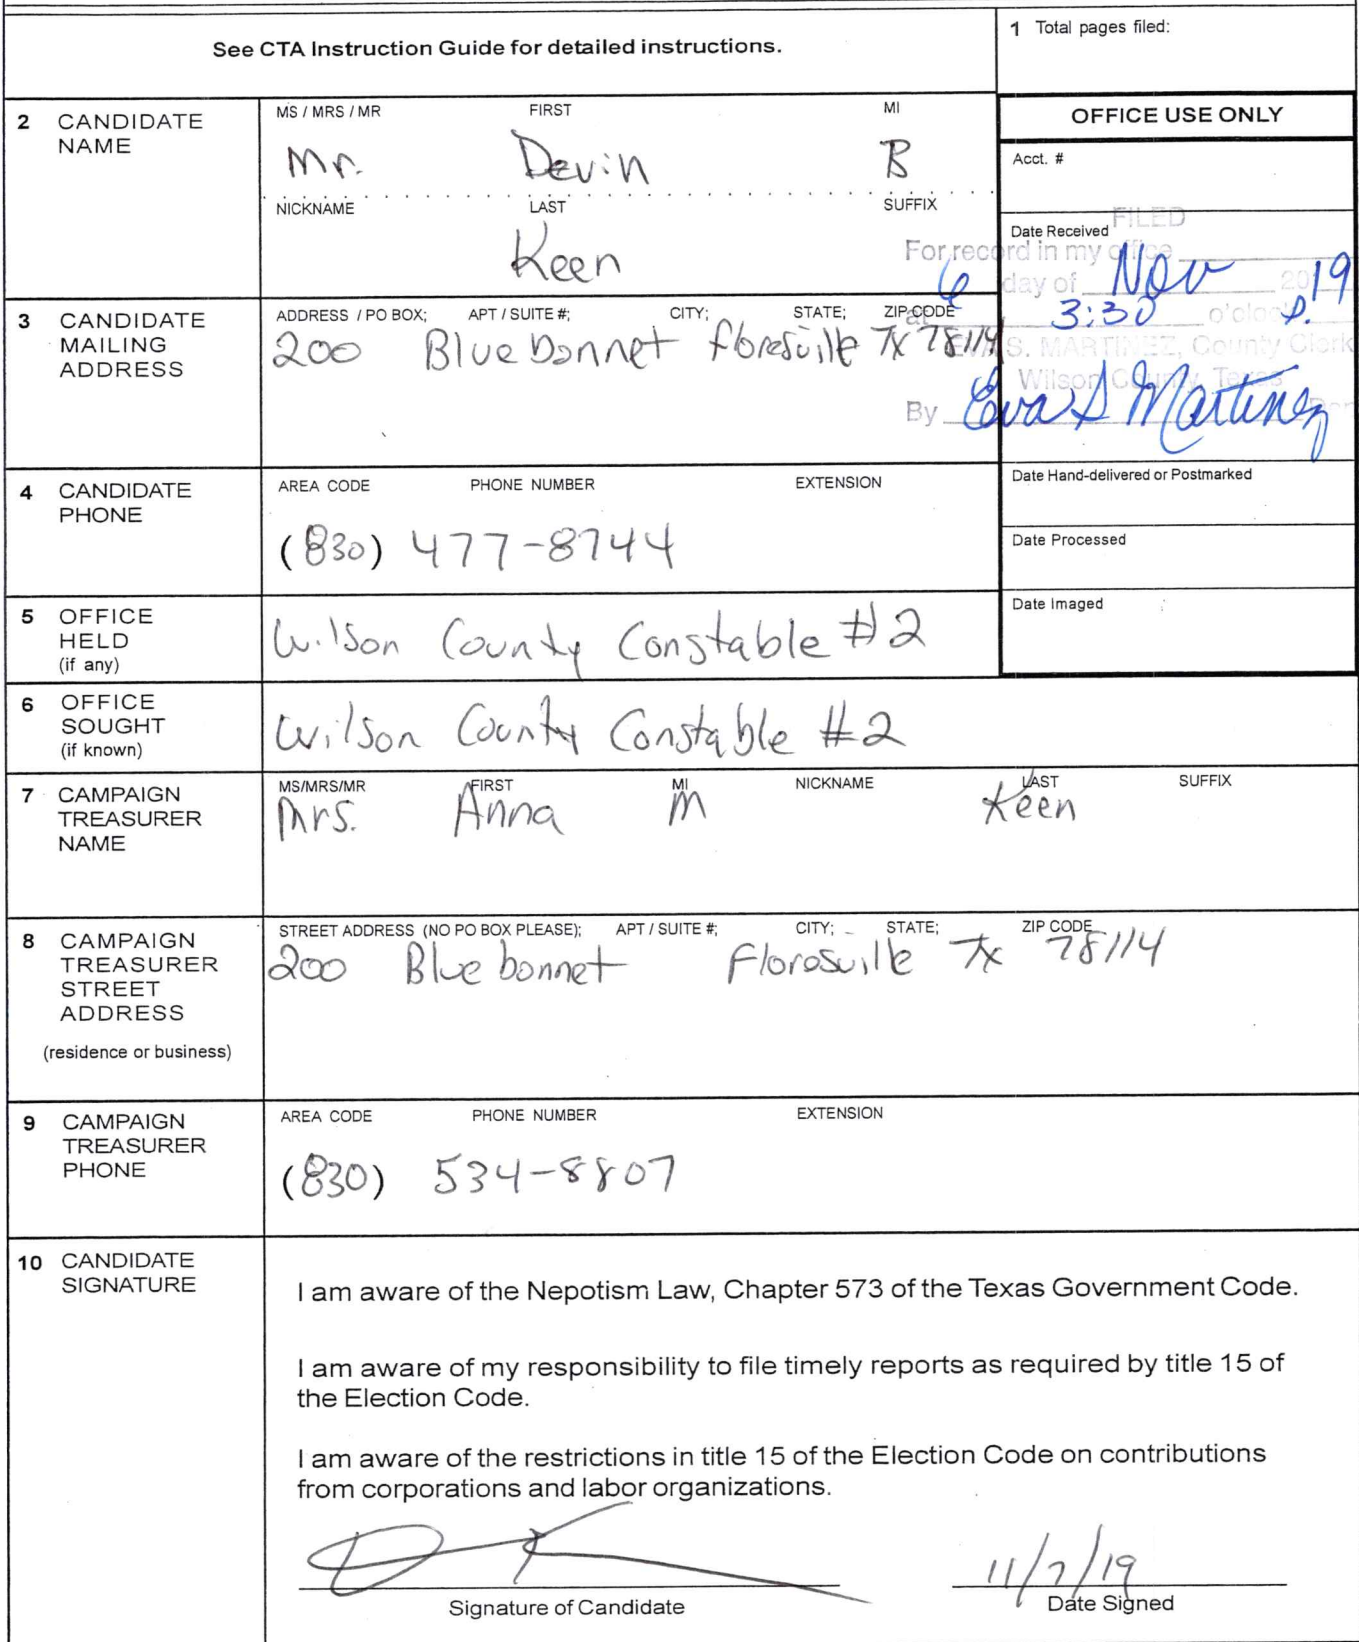 See CTA Instruction Guide for detailed instructions.
1 Total pages filed:
2 CANDIDATE NAME
MS / MRS / MR FIRST MI
Mr. Devin B
NICKNAME LAST SUFFIX
Keen
OFFICE USE ONLY
Acct. #
Date Received
FILED
For record in my office
6 day of Nov 2019
at 3:30 o'clock P.
EVA S. MARTINEZ, County Clerk
Wilson County, Texas
By Eva S Martinez
Date Hand-delivered or Postmarked
Date Processed
Date Imaged
3 CANDIDATE MAILING ADDRESS
ADDRESS / PO BOX; APT / SUITE #; CITY; STATE; ZIP CODE
200 Bluebonnet floresville Tx 78114
4 CANDIDATE PHONE
AREA CODE PHONE NUMBER EXTENSION
(830) 477-8744
5 OFFICE HELD (if any)
Wilson County Constable #2
6 OFFICE SOUGHT (if known)
Wilson County Constable #2
7 CAMPAIGN TREASURER NAME
MS/MRS/MR FIRST MI NICKNAME LAST SUFFIX
Mrs. Anna M Keen
8 CAMPAIGN TREASURER STREET ADDRESS
(residence or business)
STREET ADDRESS (NO PO BOX PLEASE); APT / SUITE #; CITY; STATE; ZIP CODE
200 Bluebonnet Floresville Tx 78114
9 CAMPAIGN TREASURER PHONE
AREA CODE PHONE NUMBER EXTENSION
(830) 534-8807
10 CANDIDATE SIGNATURE
I am aware of the Nepotism Law, Chapter 573 of the Texas Government Code.
I am aware of my responsibility to file timely reports as required by title 15 of
the Election Code.
I am aware of the restrictions in title 15 of the Election Code on contributions
from corporations and labor organizations.
11/7/19
Signature of Candidate Date Signed